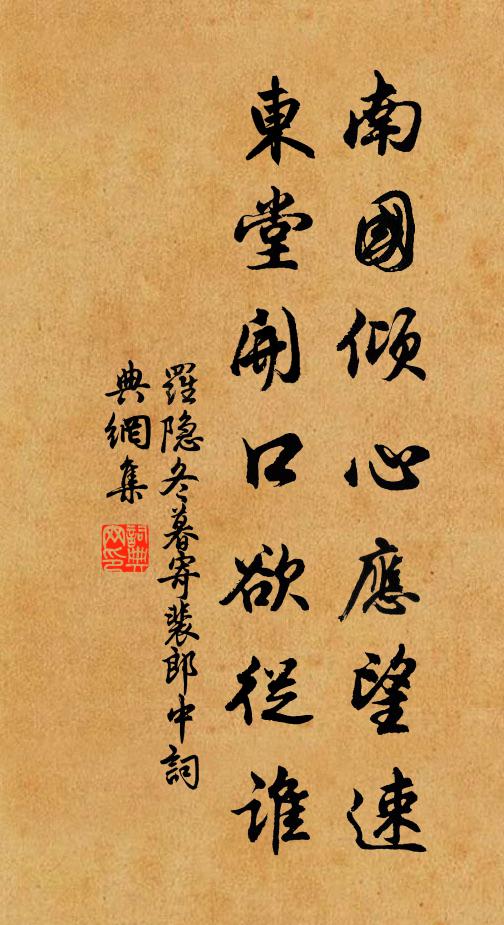 南國傾心應望速
東堂開口欲從誰
羅隐冬暮寄裴郎中詞
典網集
詞典网印